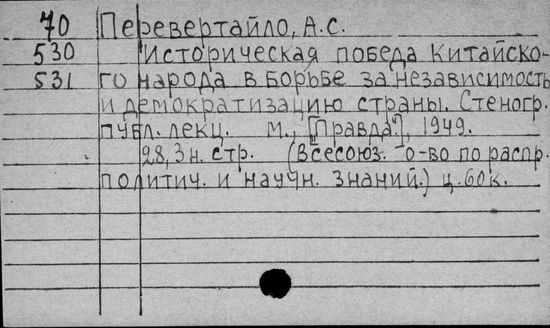 70 Перевертайло, А.С.
530 Историческая победа Китайско-
531 го народа в борьбе за независимость
и демократизацию страны. Стеногр.
публ. лекц. М., [„Правда"], 1949.
28, 3 н. стр. (Всесоюз. о-во по распр.
политич. и научн. знаний.) ц. 60 к.